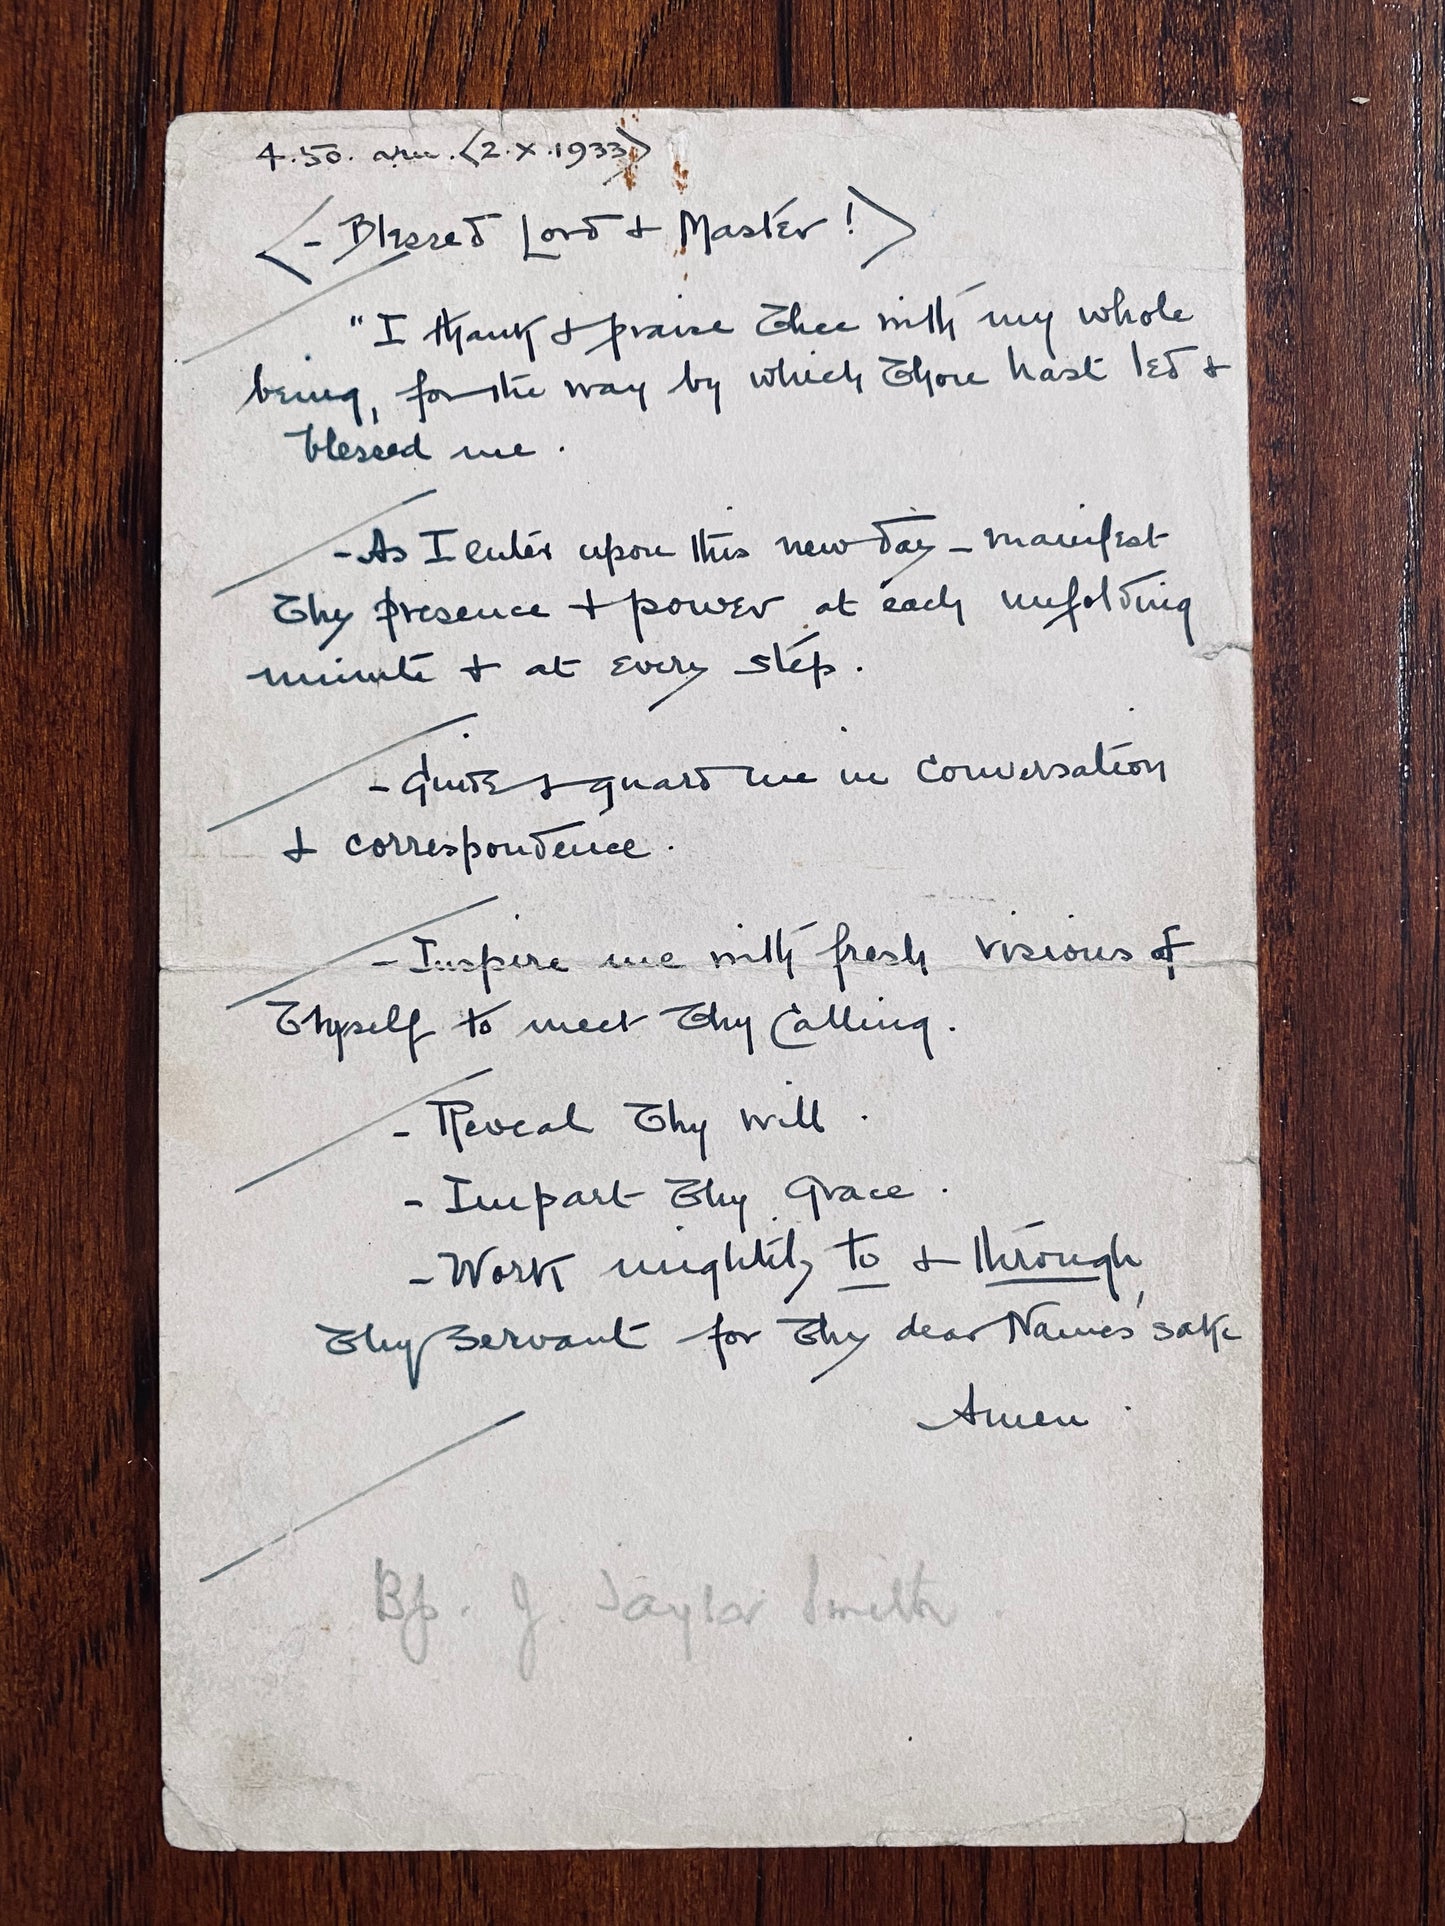 4.50. am. <2.X.1933>
<- Blessed Lord & Master!>
"I thank & praise Thee with my whole
being, for the way by which Thou hast led &
blessed me.
- As I enter upon this new day - manifest
Thy presence & power at each unfolding
minute & at every step.
- Guide & guard me in conversation
& correspondence.
- Inspire me with fresh visions of
Thyself to meet Thy Calling.
- Reveal Thy will.
- Impart Thy Grace.
- Work mightily to & through
Thy Servant for Thy dear Names' sake
Amen.
Bp. J. Taylor Smith.